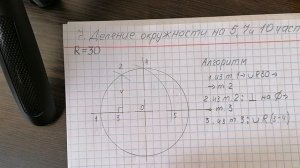 7. Деление окружности на 5, 7 и 10 част
R=30
Алгоритм
1. из т. 1 → ∪R30 →
→ т. 2
2. из т. 2 : ⊥ на
т. 3
3. из т. 3 : ∪ R (3-4)
4
2
1
3
0
5